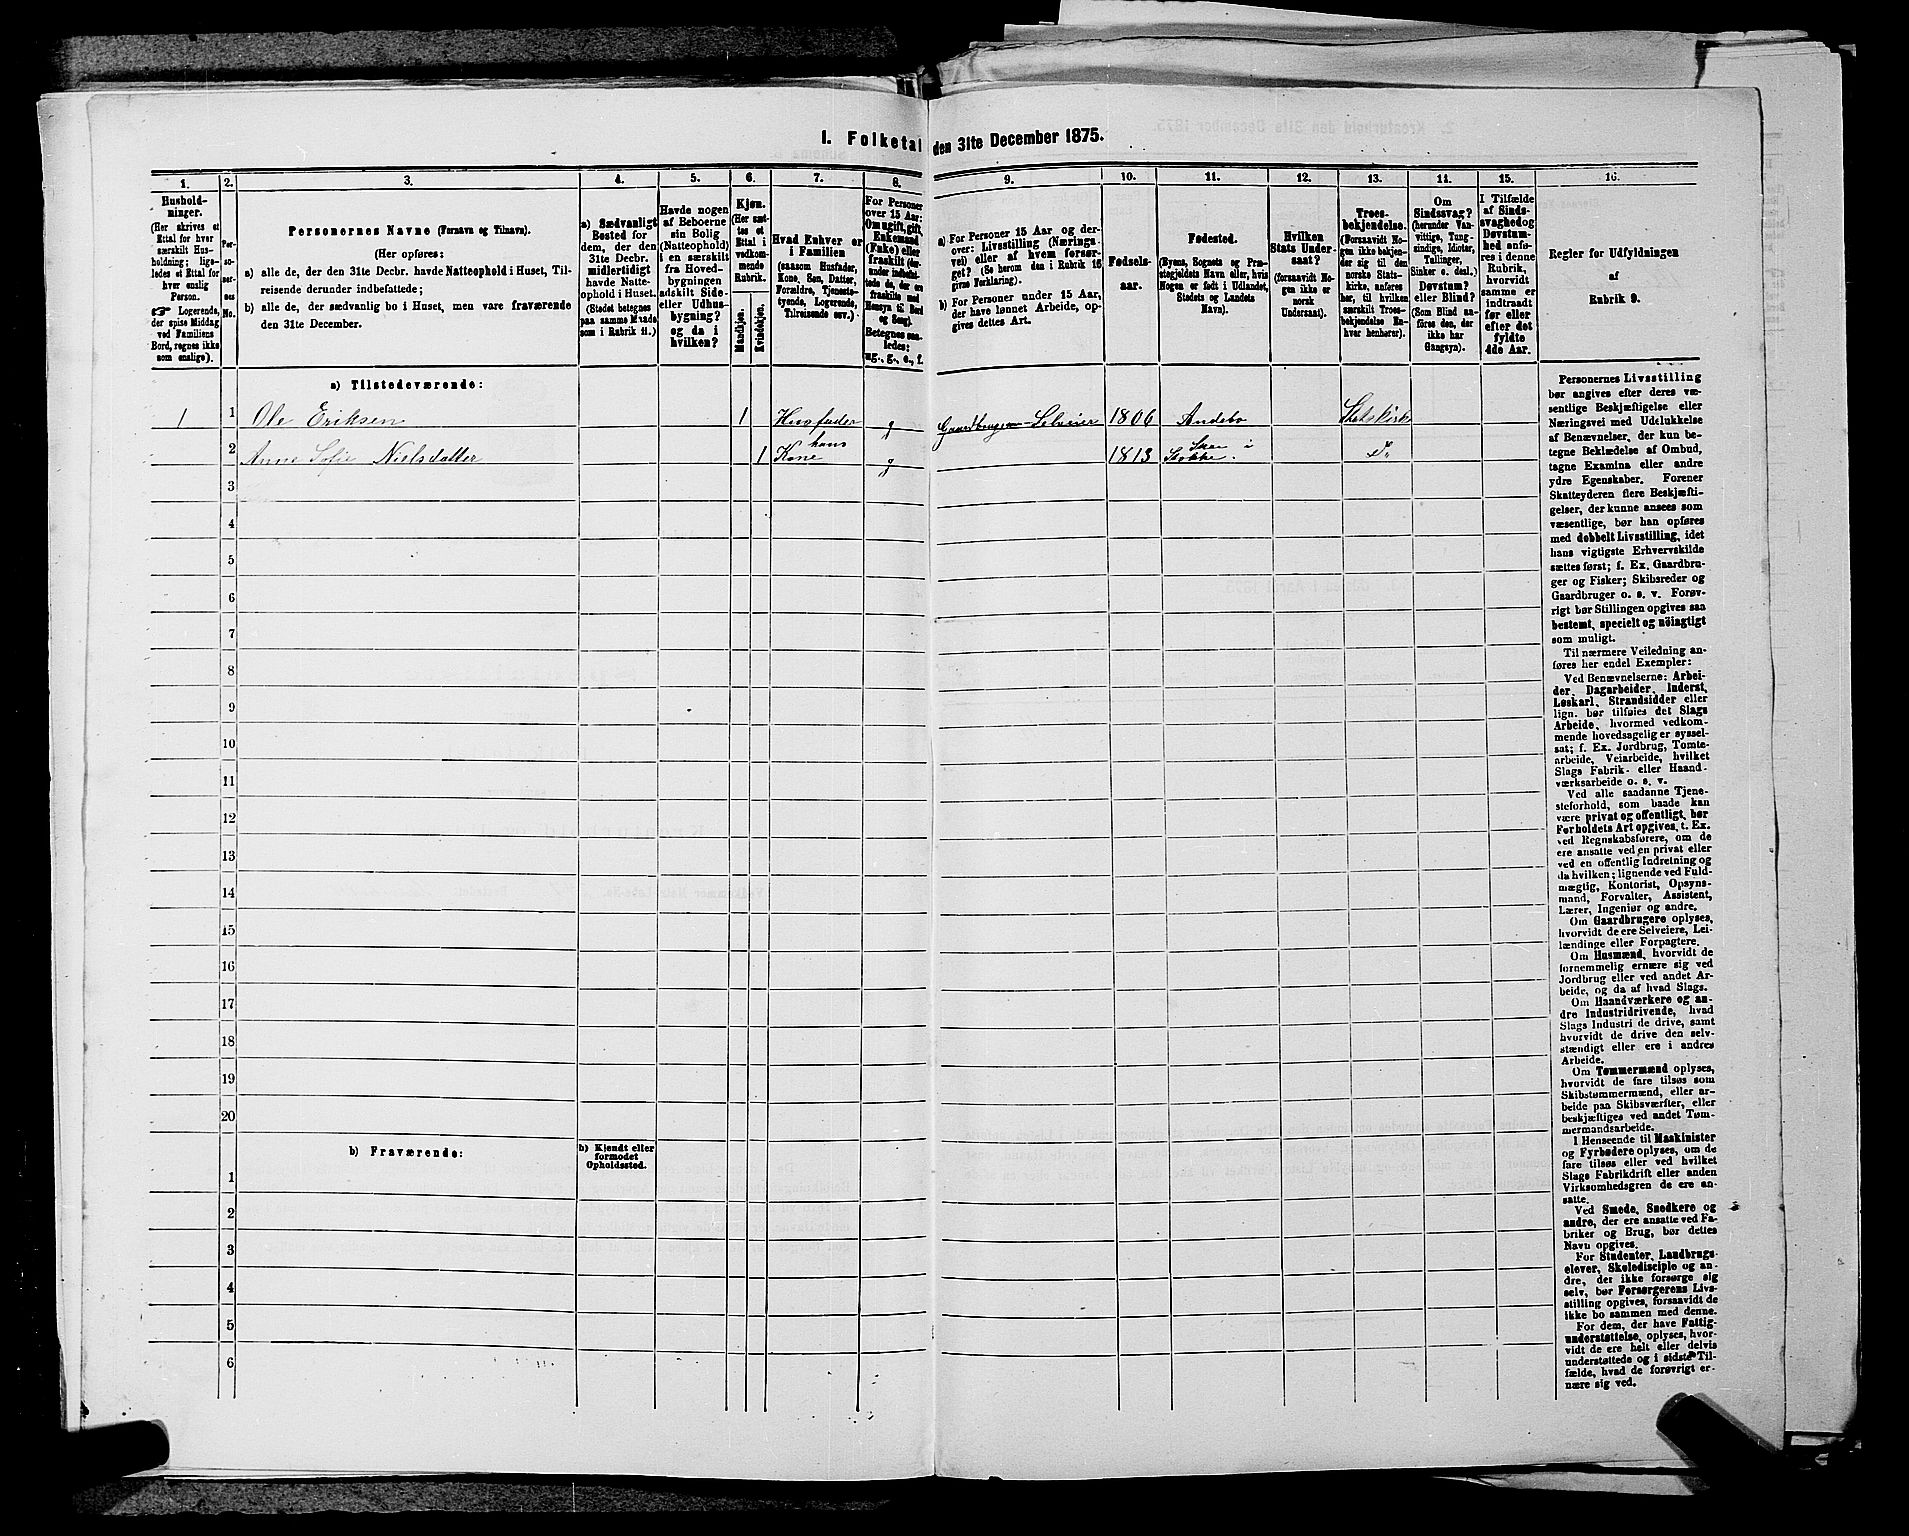 I. Folketal den 31te December 1875.
1.
Hushold-
ninger.
(Her skrives et
Ettal for hver
særskilt Hus-
holdning; lige-
ledes et Ettal for
hver enslig
Person.
☞ Logerende,
der spise Middag
ved Familiens
Bord, regnes ikke
som enslige).
2.
Per-
so-
ner-
nes
No.
3.
Personernes Navne (Fornavn og Tilnavn).
(Her opføres:
a) alle de, der den 31te Decbr. havde Natteophold i Huset, Til-
reisende derunder indbefattede;
b) alle de, der sædvanlig bo i Huset, men vare fraværende
den 31te December.
4.
a) Sædvanligt
Bosted for
dem, der den
31te Decbr.
midlertidigt
havde Natte-
ophold i Huset.
(Stedet betegnes
paa samme Maade
som i Rubrik 11.)
5.
Havde nogen
af Beboerne
sin Bolig
(Natteophold)
i en særskilt
fra Hoved-
bygningen
adskilt Side-
eller Udhus-
bygning?
og da i
hvilken?
6.
Kjøn.
(Her sæt-
tes et
Ettal i
vedkom-
mende
Rubrik.
Mandkjøn.
Kvindekjøn.
7.
Hvad Enhver er
i Familien
(saasom Husfader,
Kone, Søn, Datter,
Forældre, Tjeneste-
tyende, Logerende,
Tilreisende osv.)
8.
For Personer
over 15 Aar:
Om ugift, gift,
Enkemand
(Enke) eller
fraskilt (her-
under indbefat-
tede de, der ere
fraskilte med
Hensyn til Bord
og Seng).
Betegnes saa-
ledes:
ug., g., e., f.
9.
a) For Personer 15 Aar og der-
over: Livsstilling (Nærings-
vei) eller af hvem forsør-
get? (Se herom den i Rubrik 16
givne Forklaring).
b) For Personer under 15 Aar,
der have lønnet Arbeide, op-
gives dettes Art.
10.
Fødsels-
aar.
11.
Fødested.
(Byens, Sognets og Præ-
stegjeldets Navn eller, hvis
Nogen er født i Udlandet,
Stedets og Landets
Navn).
12.
Hvilken
Stats Under-
saat?
(forsaavidt No-
gen ikke er
norsk
Undersaat).
13.
Troes-
bekjendelse.
(Forsaavidt No-
gen ikke bekjen-
der sig til den
norske Stats-
kirke, anføres
her, til hvilken
særskilt Troes-
bekjendelse En-
hver henhører).
14.
Om
Sindssvag?
(herunder Van-
vittige, Tung-
sindige, Idioter,
Tullinger,
Sinker o. desl.)
Døvstum?
eller Blind?
(Som Blind an-
føres den, der
ikke har
Gangsyn).
15.
I Tilfælde
af Sinds-
svaghed og
Døvstum-
hed anfø-
res i denne
Rubrik,
hvorvidt
samme er
indtraadt
før eller
efter det
fyldte
4de Aar.
16.
Regler for Udfyldningen
af
Rubrik 9.
a) Tilstedeværende:
1 1 Ole Eriksen 1 Husfader g Gaardbruger-Selveier 1806 Andebo Statskirke
2 Anne Sofie Nielsdatter 1 hans Kone g 1813 i Stokke. do
3
4
5
6
7
8
9
10
11
12
13
14
15
16
17
18
19
20
b) Fraværende:
b) Kjendt eller
formodet
Opholdssted.
1
2
3
4
5
6
Personernes Livsstilling
bør angives efter deres væ-
sentlige Beskjæftigelse eller
Næringsvei med Udelukkelse
af Benævnelser, der kun be-
tegne Beklædelse af Ombud,
tagne Examina eller andre
ydre Egenskaber. Forener
Skatteyderen flere Beskjæfti-
gelser, der kunne ansees som
væsentlige, bør han opføres
med dobbelt Livsstilling, idet
hans vigtigste Erhvervskilde
sættes først; f. Ex. Gaardbru-
ger og Fisker; Skibsreder og
Gaardbruger o. s. v. Forøv-
rigt bør Stillingen opgives saa
bestemt, specielt og nöiagtigt
som muligt.
Til nærmere Veiledning an-
føres her endel Exempler:
Ved Benævnelserne: Arbei-
der, Dagarbeider, Inderst,
Løskarl, Strandsidder eller
lign. bør tilføies det Slags
Arbeide, hvormed vedkom-
mende hovedsagelig er syssel-
sat; f. Ex. Jordbrug, Tomte-
arbeide, Veiarbeide, hvilket
Slags Fabrik- eller Haand-
værksarbeide o. s. v.
Ved alle saadanne Tjene-
steforhold, som baade kan
være privat og offentligt, bør
Forholdets Art opgives, t. Ex.
ved Regnskabsførere, om de
ere ansatte ved en privat eller
ved en offentlig Indretning og
da hvilken; lignende ved Fuld-
mægtig, Kontorist, Opsyns-
mand, Forvalter, Assistent,
Lærer, Ingeniør og andre.
Om Gaardbrugere oplyses,
hvorvidt de ere Selveiere, Lei-
lændinge eller Forpagtere.
Om Husmænd, hvorvidt de
fornemmelig ernære sig ved
Jordbrug eller ved andet Ar-
beide, og da af hvad Slags.
Om Haandværkere og an-
dre Industridrivende, hvad
Slags Industri de drive, samt
hvorvidt de drive den selv-
stændigt eller ere i andres
Arbeide.
Om Tømmermænd oplyses,
hvorvidt de fare tilsøs som
Skibstømmermænd, eller ar-
beide paa Skibsværfter, eller
beskjæftiges ved andet Tøm-
mermandsarbeide.
I Henseende til Maskinister
og Fyrbødere oplyses, om de
fare tilsøs eller ved hvilket
Slags Fabrikdrift eller anden
Virksomhedsgren de ere an-
satte.
Ved Smede, Snedkere og
andre, der ere ansatte ved Fa-
briker og Brug, bør dettes
Navn opgives.
For Studenter, Landbrugs-
elever, Skoledisciple og an-
dre, der ikke forsørge sig
selv, bør Forsørgerens Livs-
stilling opgives, forsaavidt de
ikke bo sammen med denne.
For dem, der have Fattig-
understøttelse, oplyses, hvor-
vidt de ere helt eller delvis
understøttede og i sidste Til-
fælde, hvad de forøvrigt er-
nære sig ved.